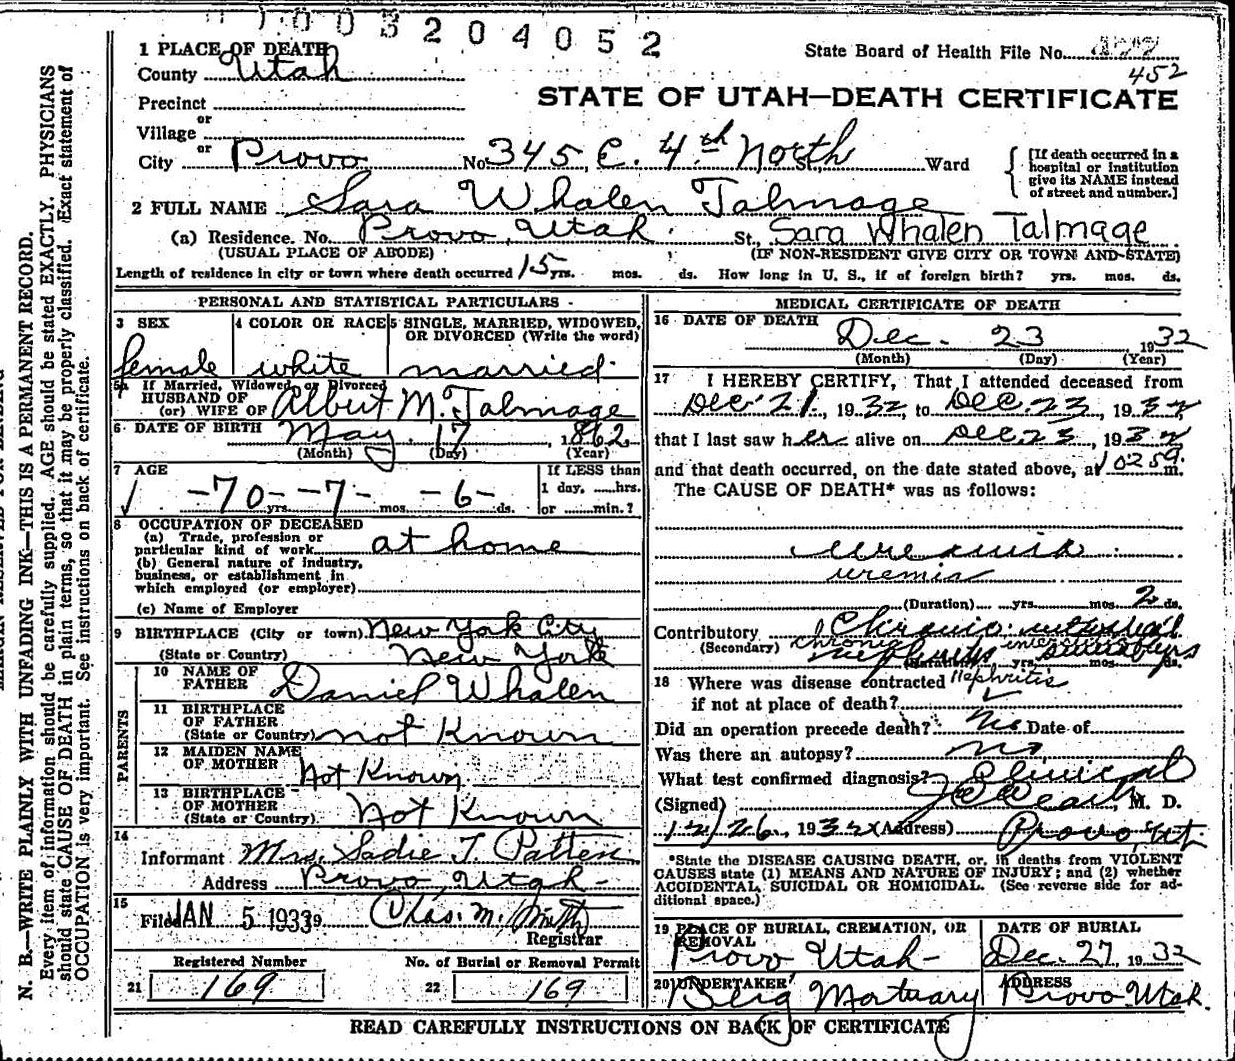 003204052
1 PLACE OF DEATH
State Board of Health File No. 477
County Utah
452
STATE OF UTAH—DEATH CERTIFICATE
Precinct
or
Village
or
City Provo No. 345 E. 4th North St., Ward
[If death occurred in a
hospital or institution
give its NAME instead
of street and number.]
2 FULL NAME Sara Whalen Talmage
(a) Residence. No. Provo, Utah. St. Sara Whalen Talmage
(USUAL PLACE OF ABODE) (IF NON-RESIDENT GIVE CITY OR TOWN AND STATE)
Length of residence in city or town where death occurred 15 yrs. mos. ds. How long in U. S., if of foreign birth? yrs. mos. ds.
PERSONAL AND STATISTICAL PARTICULARS
3 SEX
female
4 COLOR OR RACE
white
5 SINGLE, MARRIED, WIDOWED,
OR DIVORCED (Write the word)
married
5a If Married, Widowed, or Divorced
HUSBAND OF
(or) WIFE OF Albert M. Talmage
6 DATE OF BIRTH May 17, 1862
(Month) (Day) (Year)
7 AGE
-70- yrs. -7- mos. -6- ds.
If LESS than
1 day, ......hrs.
or ......min.?
8 OCCUPATION OF DECEASED
(a) Trade, profession or
particular kind of work at home
(b) General nature of industry,
business, or establishment in
which employed (or employer)
(c) Name of Employer
9 BIRTHPLACE (City or town) New York City
(State or Country) New York
PARENTS
10 NAME OF
FATHER Daniel Whalen
11 BIRTHPLACE
OF FATHER
(State or Country) not Known
12 MAIDEN NAME
OF MOTHER Not Known
13 BIRTHPLACE
OF MOTHER
(State or Country) Not Known
14
Informant Mrs. Sadie T. Patten
Address Provo, Utah-
15
Filed JAN 5 1933 Chas. M. Smith
Registrar
Registered Number
21 169
No. of Burial or Removal Permit
22 169
MEDICAL CERTIFICATE OF DEATH
16 DATE OF DEATH
Dec. 23 1932
(Month) (Day) (Year)
17 I HEREBY CERTIFY, That I attended deceased from
Dec. 21, 1932, to Dec. 23, 1932
that I last saw her alive on Dec. 23, 1932
and that death occurred, on the date stated above, at m.
The CAUSE OF DEATH* was as follows:
uraemia
uremia
(Duration) yrs. mos. 2 ds.
Contributory Chronic interstitial
(Secondary) chronic interstitial
nephritis
(Duration) yrs. mos. ds.
Nephritis
18 Where was disease contracted
if not at place of death?
Did an operation precede death? No Date of
Was there an autopsy? no
What test confirmed diagnosis? Clinical
(Signed) M. D.
12/26, 1932 (Address) Provo, Ut.
*State the DISEASE CAUSING DEATH, or, in deaths from VIOLENT
CAUSES state (1) MEANS AND NATURE OF INJURY; and (2) whether
ACCIDENTAL, SUICIDAL OR HOMICIDAL. (See reverse side for ad-
ditional space.)
19 PLACE OF BURIAL, CREMATION, OR
REMOVAL
Provo Utah-
DATE OF BURIAL
Dec. 27, 1932
20 UNDERTAKER
Berg Mortuary
ADDRESS
Provo Utah.
READ CAREFULLY INSTRUCTIONS ON BACK OF CERTIFICATE
N. B.—WRITE PLAINLY WITH UNFADING INK—THIS IS A PERMANENT RECORD.
Every item of information should be carefully supplied. AGE should be stated EXACTLY. PHYSICIANS
should state CAUSE OF DEATH in plain terms, so that it may be properly classified. (Exact statement of
OCCUPATION is very important. See instructions on back of certificate.